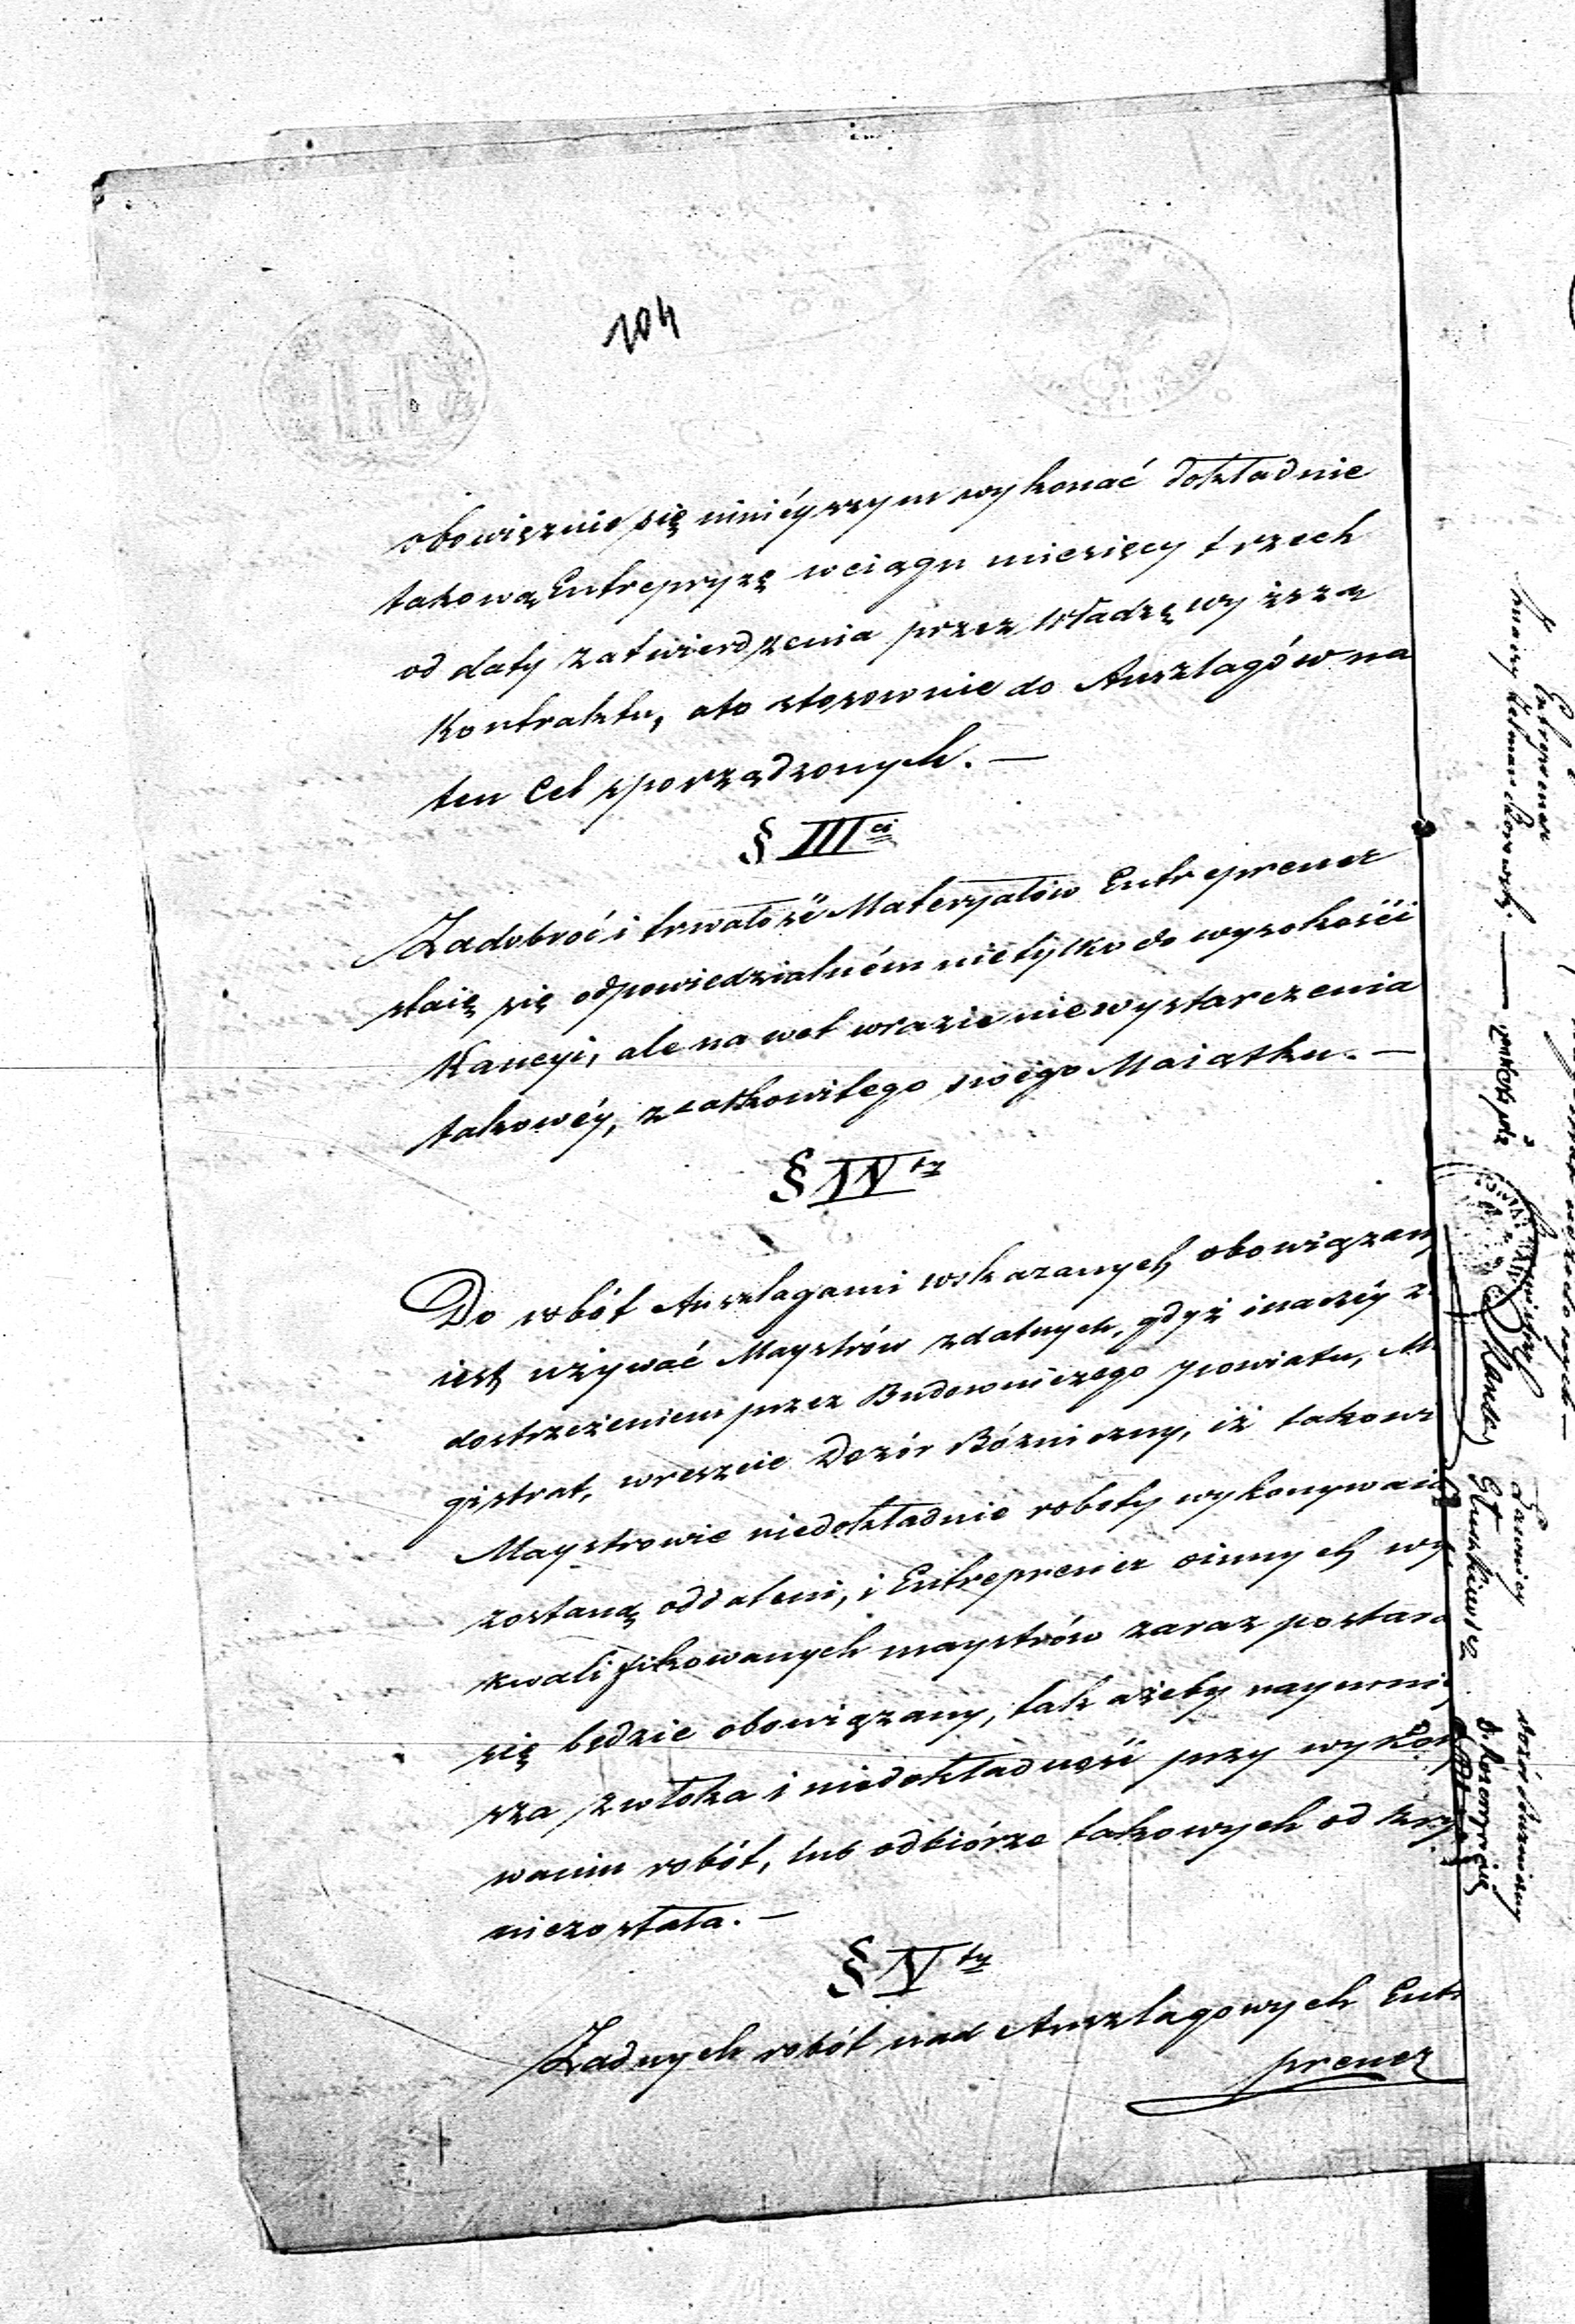 104
obowięznie się ninieyszym wykonać dokładnie
takową Entrepryzę wciągu miesięcy trzech
od daty zatwierdzenia przez Władzę wyższą
Kontraktu, ato stosownie do Anszlagów na
ten Cel sporządzonych. —
§ III ci
Zadobroć i trwałość Materyałów Entreprener
staię się odpowiedzialném nietylko do wysokości
Kaucyi, ale nawet wrazie niewystarczenia
takowéy, zcałkowitego swego Maiątku. —
§ IV ty
Do robót Anszlagami wskazanych obowiązany
iest używać Maystrów zdatnych, gdyż inaczéy z
dostrzeżeniem przez Budowniczego Powiatu, Ma
gistrat, wreszcie Dozór Bóżniczny, iż takowi
Maystrowie niedokładnie roboty wykonywaią
zostaną oddaleni, i Entreprener oinnych wy
kwalifikowanych maystrów zaraz postarać
się będzie obowiązany, tak ażeby naymniey
sza zwłoka i niedokładność przy wykony
waniu robót, lub odbiórze takowych od kry
niezostała. —
§ V ty
Żadnych robót nad Anszlagowych Entre
prener
Entreprener
Ławnicy
Dozór Bużniczny